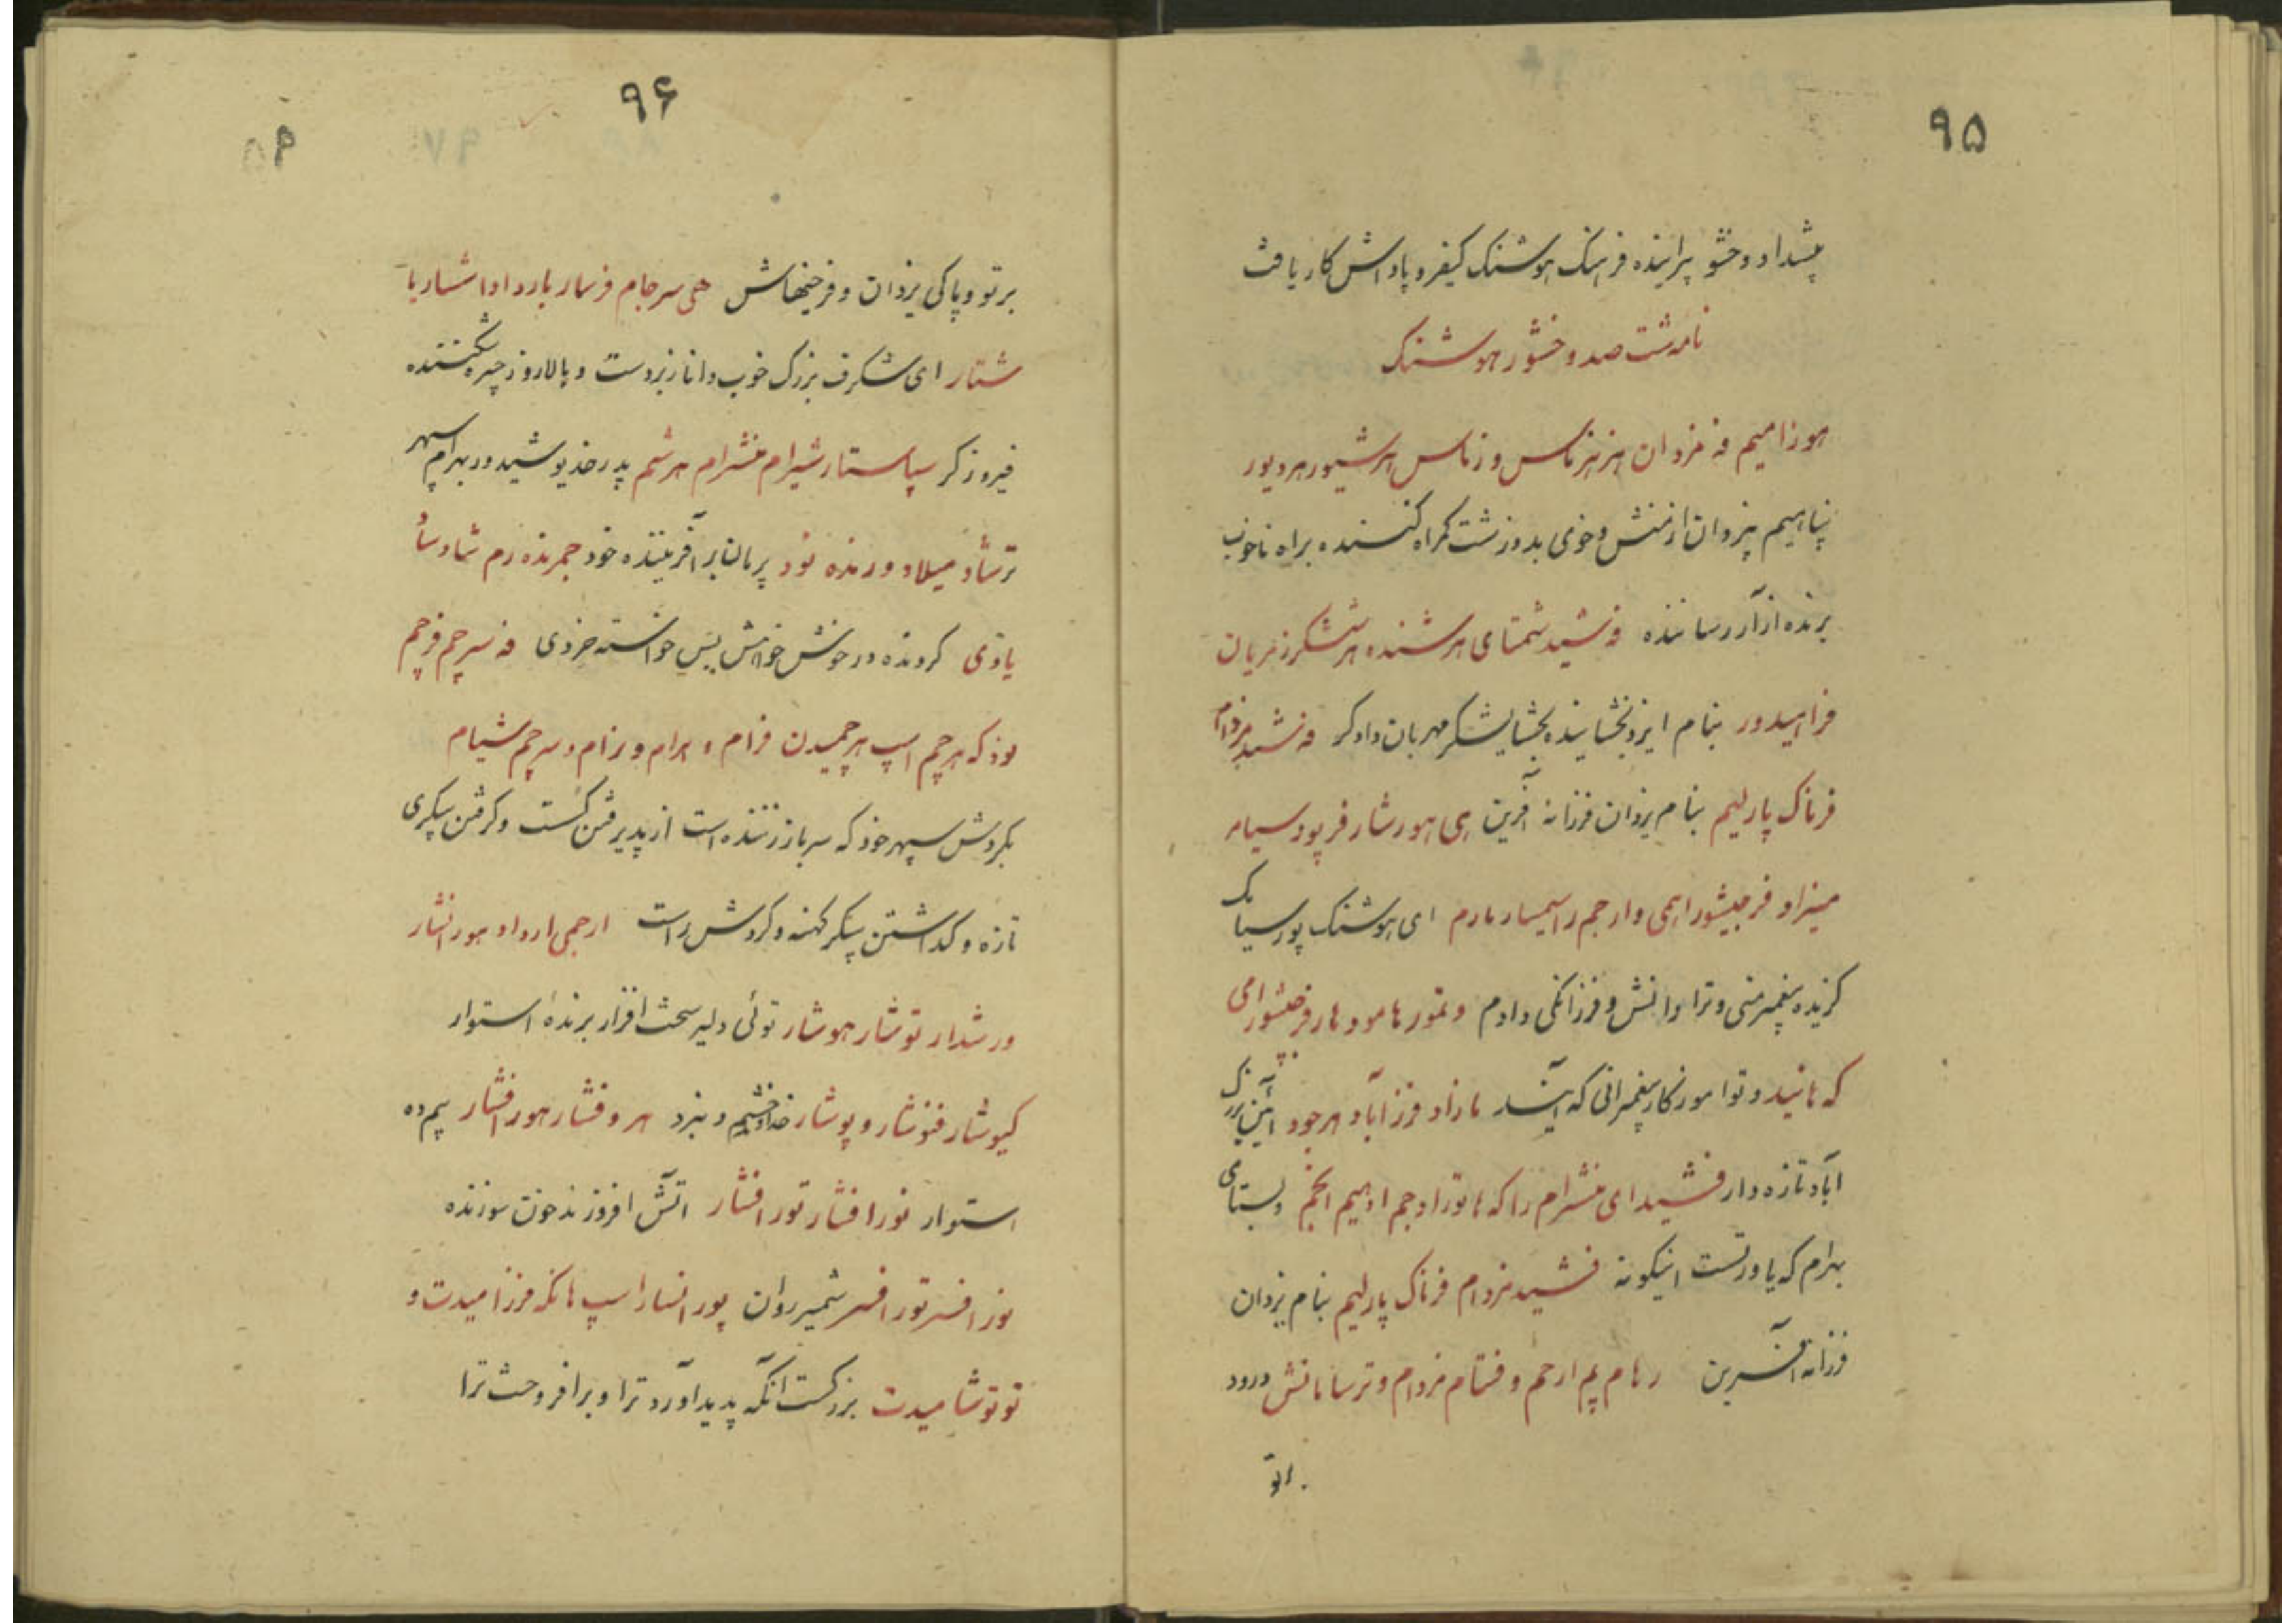 ۹۵
پیشداد وخشو پیراینده فرهنک هوشنک کیفر و پاداش کار یافت
نامه شت صد وخشور هوشنک
هوزامیم فه مزدان هزهزماس وزماس هرشیور هردیور
پناهیم بیزدان از منش و خوی بد و زشت کمراه کننده براه ناخوب
برنده ازار رساننده فه شید شمتای هرشنده هرششکر زمریان
فراهیدور بنام ایزد بخشاینده بخشایشکر مهربان دادکر فه شید مزدام
فرناک پارلیم بنام یزدان فرزانه آفرین هی هورشار فرپود سیامر
میزاد فرجیشور اهمی وارجم را سیمسار مارم ای هوشنک پور سیامک
کزیده پیغمبر منی و ترا دانش و فرزانکی دادم و تمور هامود هار فرجیشور امی
که هانید و توا موزکار پیغمبرانی که آیند مازاد فرز آباد هرجود آئین بزرک
آباد تازه دار فشیدای منشرام را که ها تورادجم ادهیم انجم و بستای
بهرام که یاور تست اینکونه فشید مزدام فرناک پارلیم بنام یزدان
فرزانه آفرین رهام یم ارجم و فتام مزدام و ترسامانش درود
بر تو
۹۶
بر تو و پاکی یزدان و فرخیهاش هی سرجام فرمار بارداد اشمار با
شتار ای شکرف بزرک خوب دانا زبردست و بالا روز چیره شکننده
فیروزکر سپاستار شیرام منشرام هرشم پدر خدیو شید ور بهرام سپهر
ترشاد میلاد ورنده نود پرمان بر آفریننده خود جمرنده رم شادسا
یاودی کردنده در خوشش خواهش پس خواسته خردی فه سرجم فرجم
نود که هرچم اسپ هرچمیدن فرام و هرام و رزام و سرچم شیام
بکردش سپهر خود که سرباز زننده است از پذیرفتن کست و کرفتن پیکری
تازه و کذاشتن پیکر کهنه و کردش راست ارجمی ارداد هور افشار
ورشدار توشار هوشار توئی دلیر سخت افزار برنده استوار
کیوشار فنوشار و پوشار خداوند خشم و نبرد هر و فشار هور افشار بیم ده
استوار نور افشار تور افشار آتش افروزنده خون سوزنده
نور افسر تور افسر شمیر روان پور انسار اسپ هانکه فرزامیدت و
تو توشامیدت بزرکست انکه پدید آورد ترا و برافروخت ترا